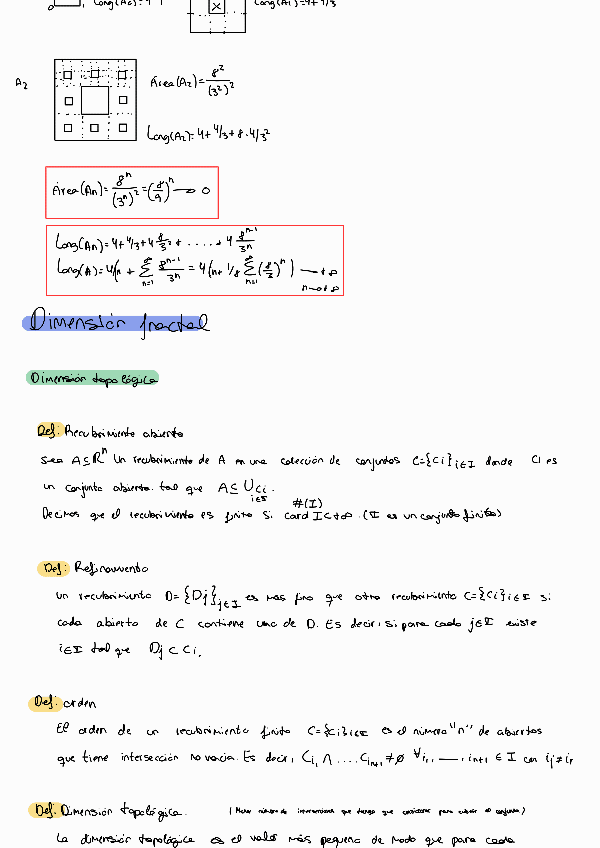 Long(A₁)=4+4/3
x
A₂
Área(A₂)= 8²/(3²)²
Long(A₂)=4+4/3+8·4/3²
Área(Aₙ)= 8ⁿ/(3ⁿ)² =(8/9)ⁿ → 0
Long(Aₙ)=4+4/3+4 8/3² + ..... + 4 8ⁿ⁻¹/3ⁿ
Long(A)=4(n + ∑ₙ₌₁^∞ 8ⁿ⁻¹/3ⁿ = 4(n+ 1/8 ∑ₙ₌₁^∞ (8/3)ⁿ) → +∞
n→+∞
Dimensión fractal
Dimensión topológica
Def: Recubrimiento abierto
Sea A⊆ℝⁿ Un recubrimiento de A es una colección de conjuntos C={Ci}i∈I donde Ci es
un conjunto abierto tal que A⊆ ∪Ci.
i∈I
#(I)
Decimos que el recubrimiento es finito si card I<+∞. (I es un conjunto finito)
Def: Refinamiento
Un recubrimiento D={Dj}j∈I es más fino que otro recubrimiento C={Ci}i∈I si
cada abierto de C contiene uno de D. Es decir, si para cada j∈I existe
i∈I tal que Dj⊂Ci.
Def: orden
El orden de un recubrimiento finito C={Ci}i∈I es el número "n" de abiertos
que tiene intersección no vacía. Es decir, Ci₁∩....Ciₙ₊₁≠∅ ∀i₁, ––, iₙ₊₁∈I con ij≠ir
Def: Dimensión topológica. (Menor número de intersecciones que tengo que considerar para cubrir el conjunto)
La dimensión topológica es el valor más pequeño de modo que para cada